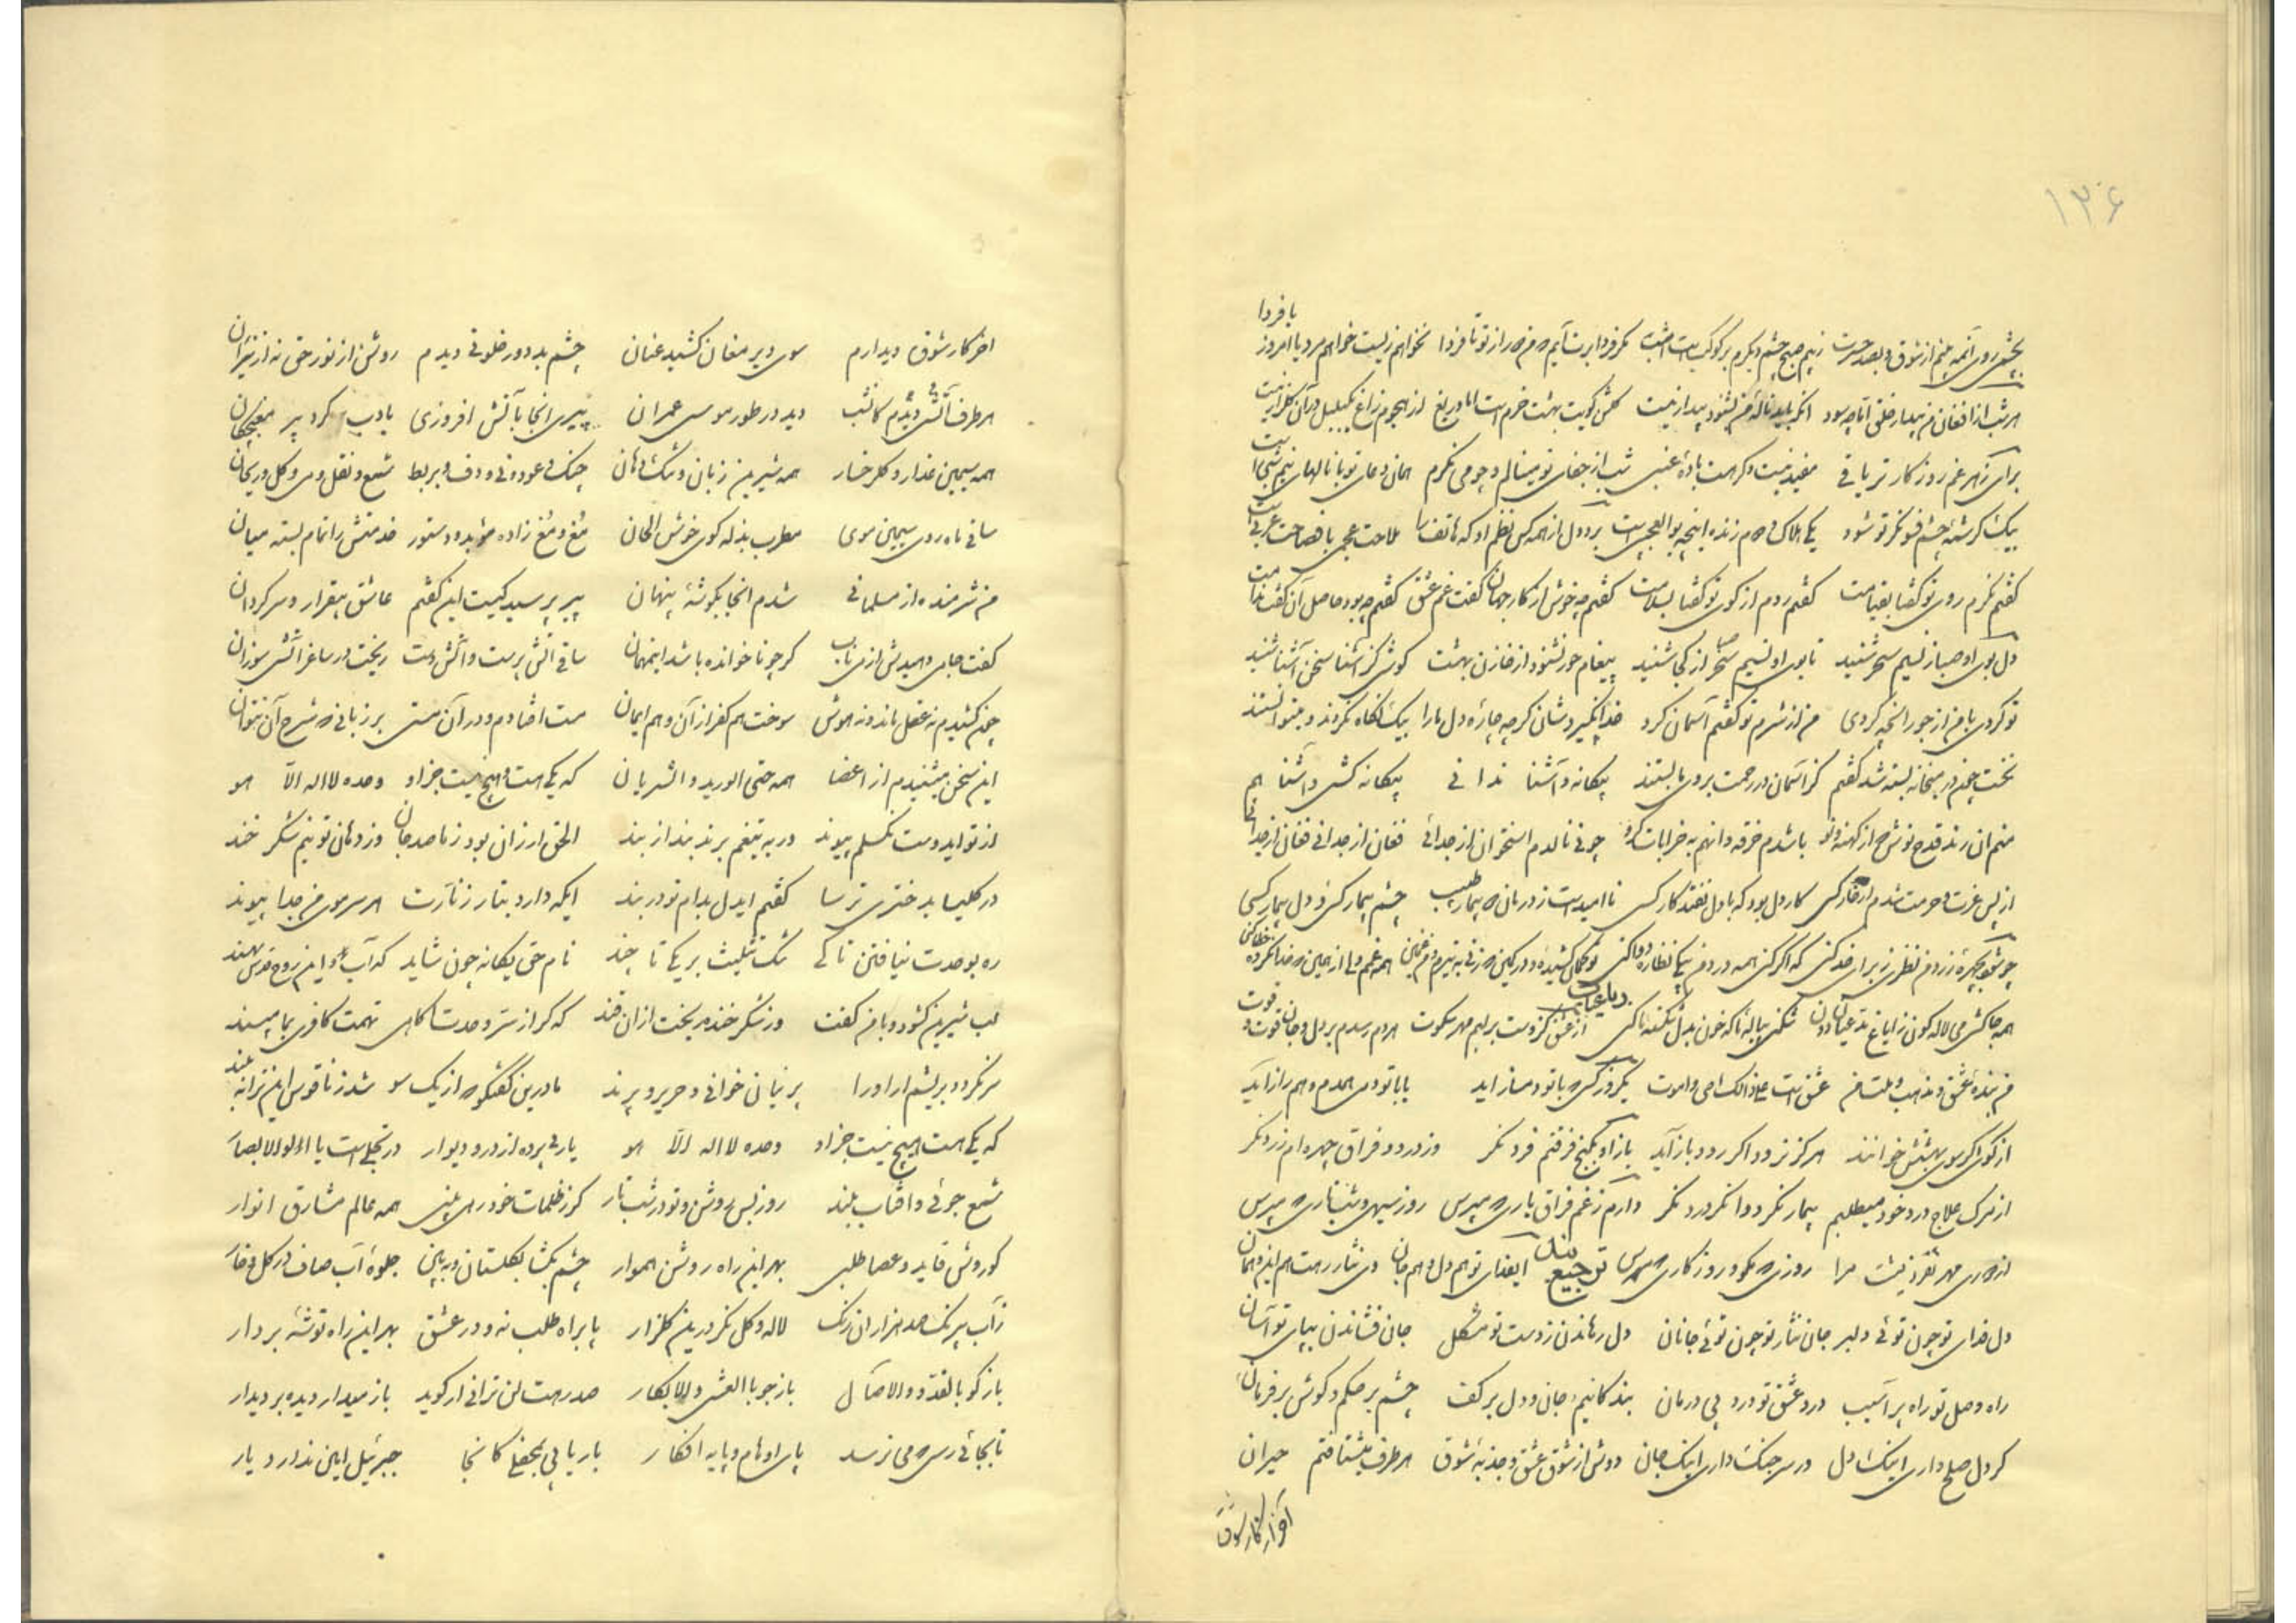 ۱۳۶
با فردا
هر شب از افغان من بیدار خلق اما چه سود انکه باید نالهٔ من بشنود بیدار نیست گلشن کویت بهشت خرم است اما دریغ از هجوم زاغ
برای زهر غم روزگار تریاقی مفید نیست دگر هست بادهٔ عنبی شب از جفای تو مینالم و چو می نگرم همان دعای تو با نالهای نیم شبی است
بیک کرشمه چشم فسونگر تو شود یکی هلاک یکی زنده اینچه بوالعجبی است برد دل از همه کس نظم او که هاتف را ملاحت عجمی با فصاحت عربی است
گفتم نگرم روی تو گفتا بقیامت گفتم روم از کوی تو گفتا بسلامت گفتم چه خوش از کار جهان گفت غم عشق گفتم چه بود حاصل آن گفت ندامت
دل بوی او صبا ز نسیم سحر شنید تا بوی او نسیم سحر از کجا شنید پیغام حور نشنود از خازن بهشت کوشی کز آشنا سخن آشنا شنید
تو کردی با من از جور آنچه کردی من از شرم تو کفتم آسمان کرد خدا نگیردشان گرچه چارهٔ دل ما را بیک نگاه نکردند و میتوانستند
نخست چون در میخانه بسته شد گفتم کز آسمان در رحمت بروی ما بستند بیگانه و آشنا ندانی بیگانه کشی و آشنا هم
چونی نالدم استخوان از جدائی فغان از جدائی فغان از جدائی
از بس عزت و حرمت شدم خار کسی کار دل بود که با دل نفتد کار کسی نا امید است ز درمان دو بیمار طبیب چشم بیمار کسی و دل بیمار کسی
رباعیات
من بندهٔ عشق و مذهب و ملت من عشق است علی ذالک احی و اموت یکروز کسی که با تو دمساز آید یا با تو دمی همدم و همراز آید
از کوی تو گر سوی بهشتش خوانند هرگز نرود اگر رود باز آید باز آو بکنج فرقتم فرد نگر وز درد فراق چهره ام زرد نگر
از مرگ علاج درد خود میطلبم بیمار نگر دوا نگر درد نگر دارم ز غم فراق یاری که مپرس روز سیهی و شب تاری که مپرس
از دوری مهر دلفروزیست مرا روزی که مگو و روزگاری که مپرس ترجیع بند ایفدای تو هم دل و هم جان وی نثار رهت هم این و هم آن
دل فدای تو چون توئی دلبر جان نثار تو چون توئی جانان دل رهاندن ز دست تو مشکل جان فشاندن بپای تو آسان
راه وصل تو راه پر آسیب درد عشق تو درد بی درمان بندگانیم جان و دل بر کف چشم بر حکم و گوش بر فرمان
گر دل صلح داری اینک دل ور سر جنگ داری اینک جان دوش از شوق عشق و جذبهٔ شوق هر طرف میشتافتم حیران
آخر کار شوق
آخر کار شوق دیدارم سوی دیر مغان کشید عنان چشم بد دور خلوتی دیدم روشن از نور حق نه از نیران
هر طرف آتشی دیدم کانشب دید در طور موسی عمران پیری انجا بآتش افروزی بادب گرد پیر مغبچگان
همه سیمین عذار و گلرخسار همه شیرین زبان و تنگ دهان چنگ و عود و نی و دف و بربط شمع و نقل و می و گل و ریحان
ساقی ماه روی سیمین موی مطرب بذله گوی خوش الحان مغ و مغ زاده موبد و دستور خدمتش را تمام بسته میان
من شرمنده از مسلمانی شدم انجا بگوشهٔ پنهان پیر پرسید کیست این گفتم عاشق بیقرار و سرگردان
گفت جامی دهیدش از می ناب گرچه ناخوانده باشد اینمهمان ساقی آتش پرست و آتش دست ریخت در ساغر آتش سوزان
چون کشیدم نه عقل ماند و نه هوش سوخت هم کفر از آن و هم ایمان مست افتادم و در آن مستی بزبانی که شرح آن نتوان
این سخن میشنیدم از اعضا همه حتی الورید و الشریان که یکی هست و هیچ نیست جز او وحده لا اله الا هو
از تو ایدوست نگسلم پیوند ور به تیغم برند بند از بند الحق ارزان بود ز ما صد جان وز دهان تو نیم شکر خند
در کلیسا بدختری ترسا گفتم ایدل بدام تو در بند ایکه دارد بتار زنارت هر سر موی من جدا پیوند
ره بوحدت نیافتن تا کی ننگ تثلیث بر یکی تا چند نام حق یگانه چون شاید که اب و ابن و روح قدس نهند
لب شیرین گشود و با من گفت وز شکر خند ریخت از لب قند که گر از سر وحدت آگاهی تهمت کافری بما مپسند
سه نگردد بریشم ار او را پرنیان خوانی و حریر و پرند ما درین گفتگو که از یک سو شد ز ناقوس این ترانه بلند
که یکی هست هیچ نیست جز او وحده لا اله الا هو یار بی پرده از در و دیوار در تجلی است یا اولو الابصار
شمع جوئی و آفتاب بلند روز بس روشن و تو در شب تار گر ز ظلمات خود رهی بینی همه عالم مشارق انوار
کوروش قاید و عصا طلبی بهر این راه روشن هموار چشم بگشا بگلستان و ببین جلوهٔ آب صاف در گل و خار
ز آب بیرنگ صد هزاران رنگ لاله و گل نگر درین گلزار پا براه طلب نه و در عشق بهر این راه توشهٔ بردار
باز گو بالغدو و الاصال باز جو بالعشی و الابکار صد رهت لن ترانی ار گوید باز میدار دیده بر دیدار
تا بجائی رسی که می نرسد پای اوهام و پایه افکار بار یابی بمحفلی کانجا جبرئیل امین ندارد بار